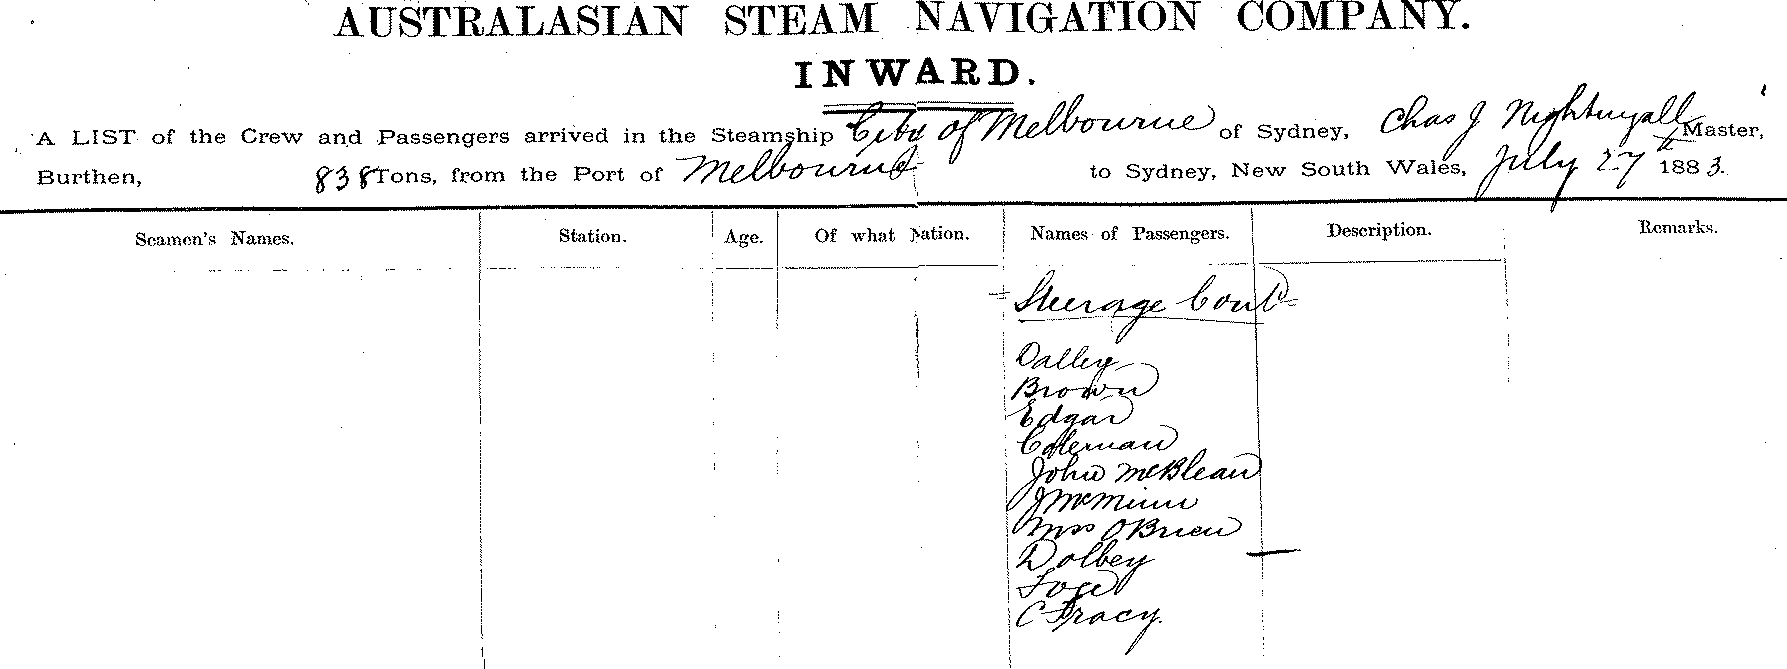 AUSTRALASIAN STEAM NAVIGATION COMPANY.
INWARD.
A LIST of the Crew and Passengers arrived in the Steamship City of Melbourne of Sydney, Chas J Nightingall Master,
Burthen, 838 Tons, from the Port of Melbourne to Sydney, New South Wales, July 27th 1883.
Seamen's Names. Station. Age. Of what Nation. Names of Passengers. Description. Remarks.
Steerage Cont
Dalley
Brown
Edgar
Coleman
John McBlean
J McMinn
Miss O'Brien
Dolbey
C Tracy.